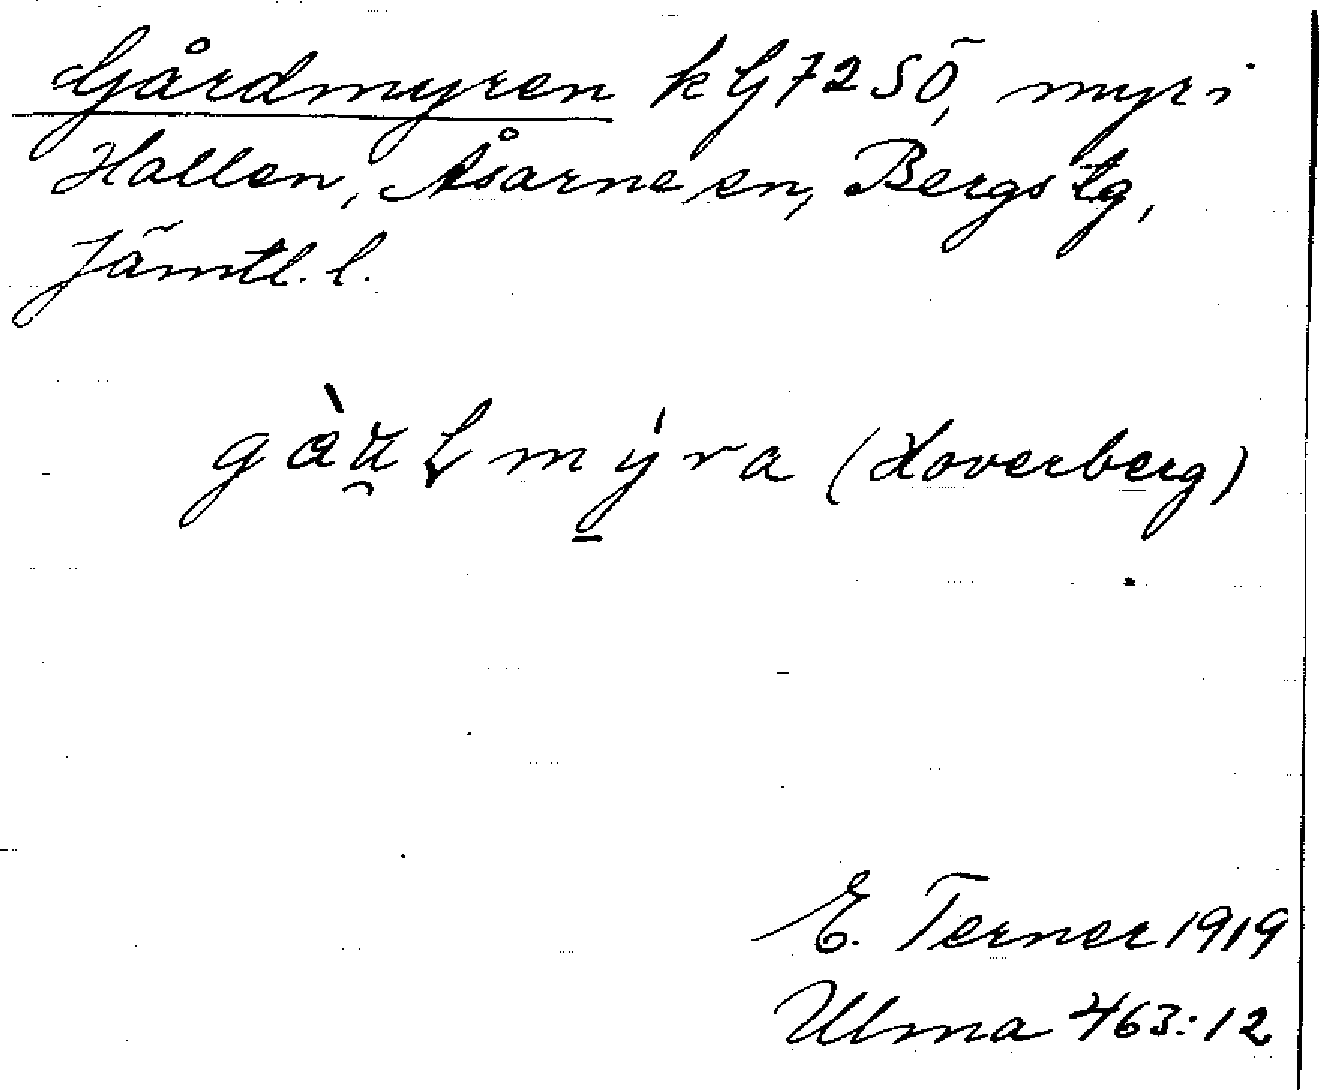 Gårdmyren k G 72 SÖ, myr i
Hallen, Åsarne sn, Bergs tg,
Jämtl. l.
gàu̯Lmýra (Hoverberg)
E. Terner 1919
Ulma 463:12